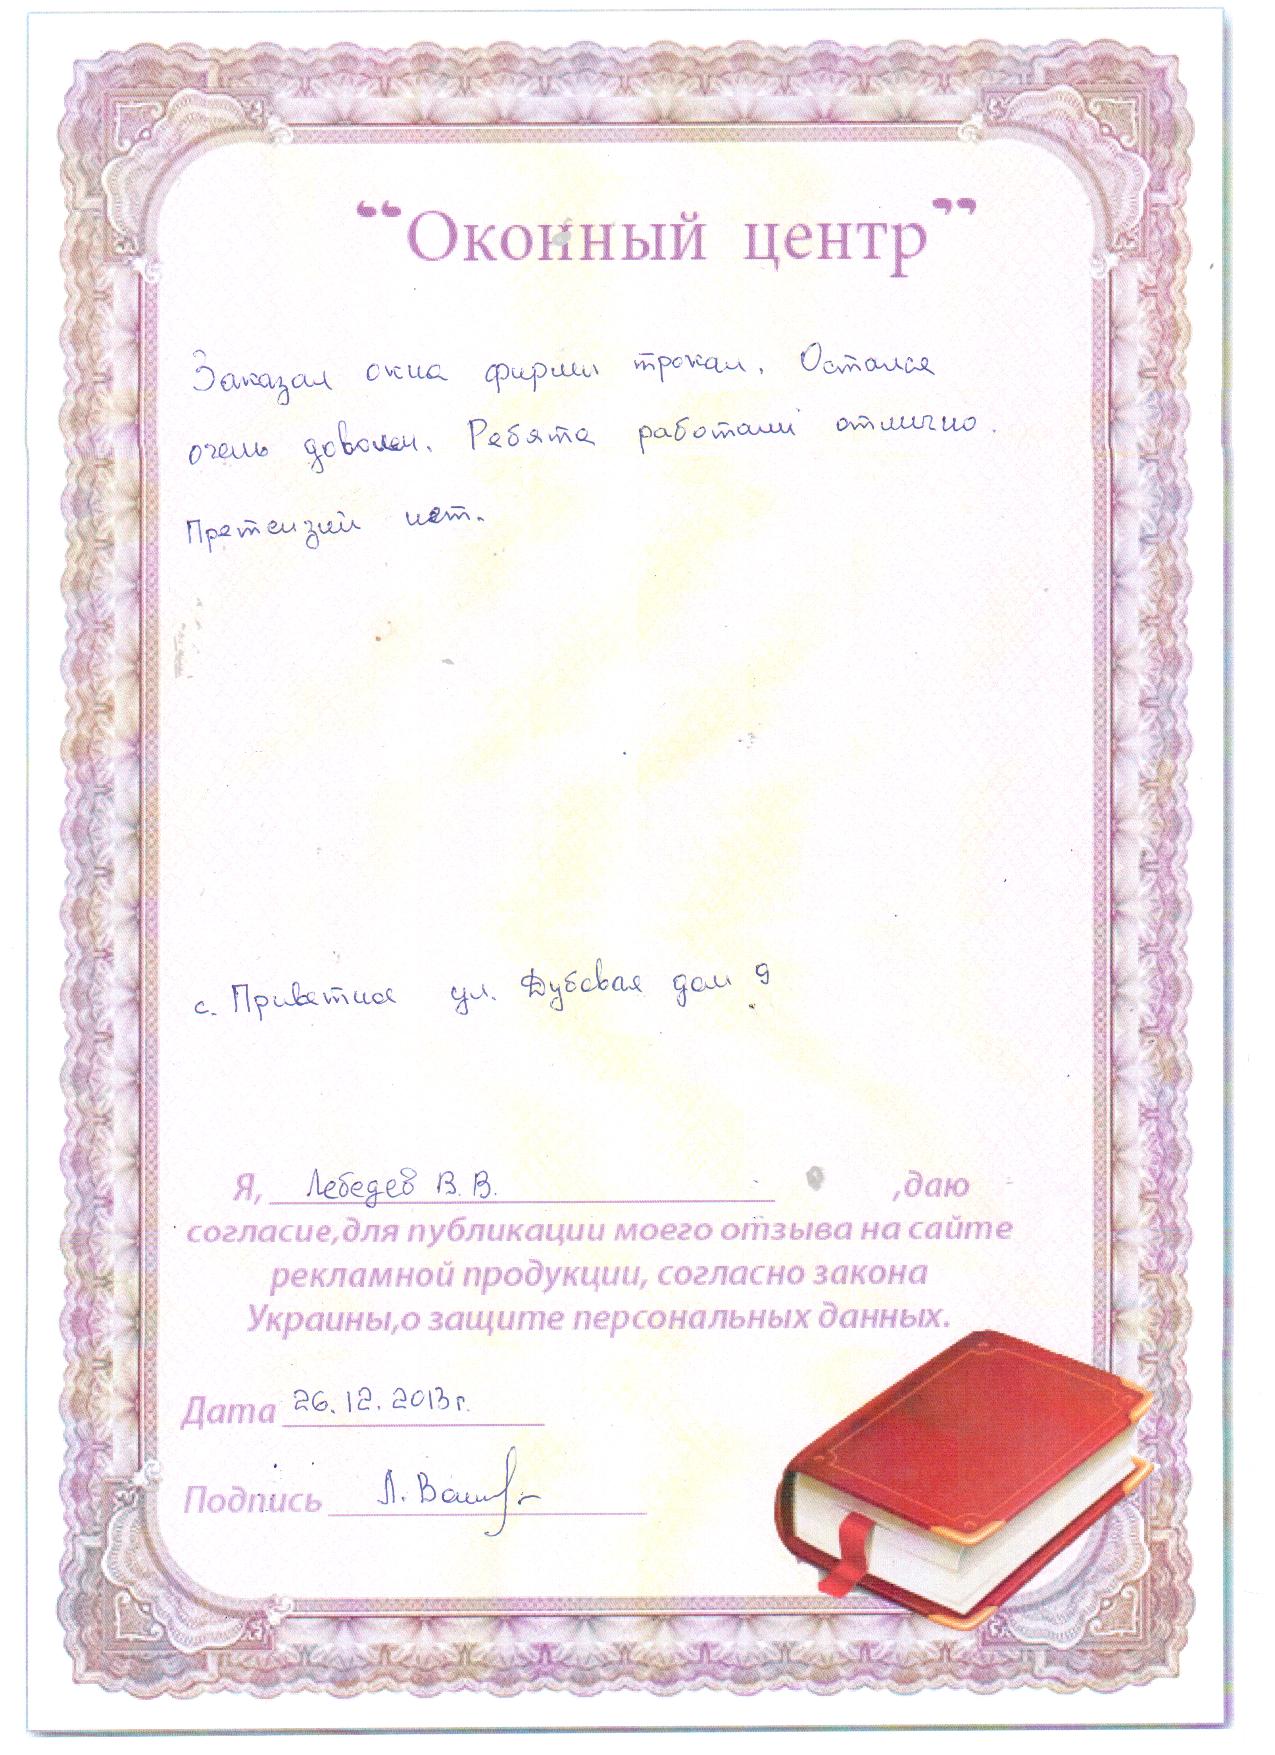 “Оконный центр”
Заказал окна фирмы трокал. Остался
очень доволен. Ребята работали отлично.
Претензий нет.
с. Приветное ул. Дубовая дом 9
Я, Лебедев В. В. ,даю
согласие,для публикации моего отзыва на сайте
рекламной продукции, согласно закона
Украины,о защите персональных данных.
Дата 26.12.2013г.
Подпись